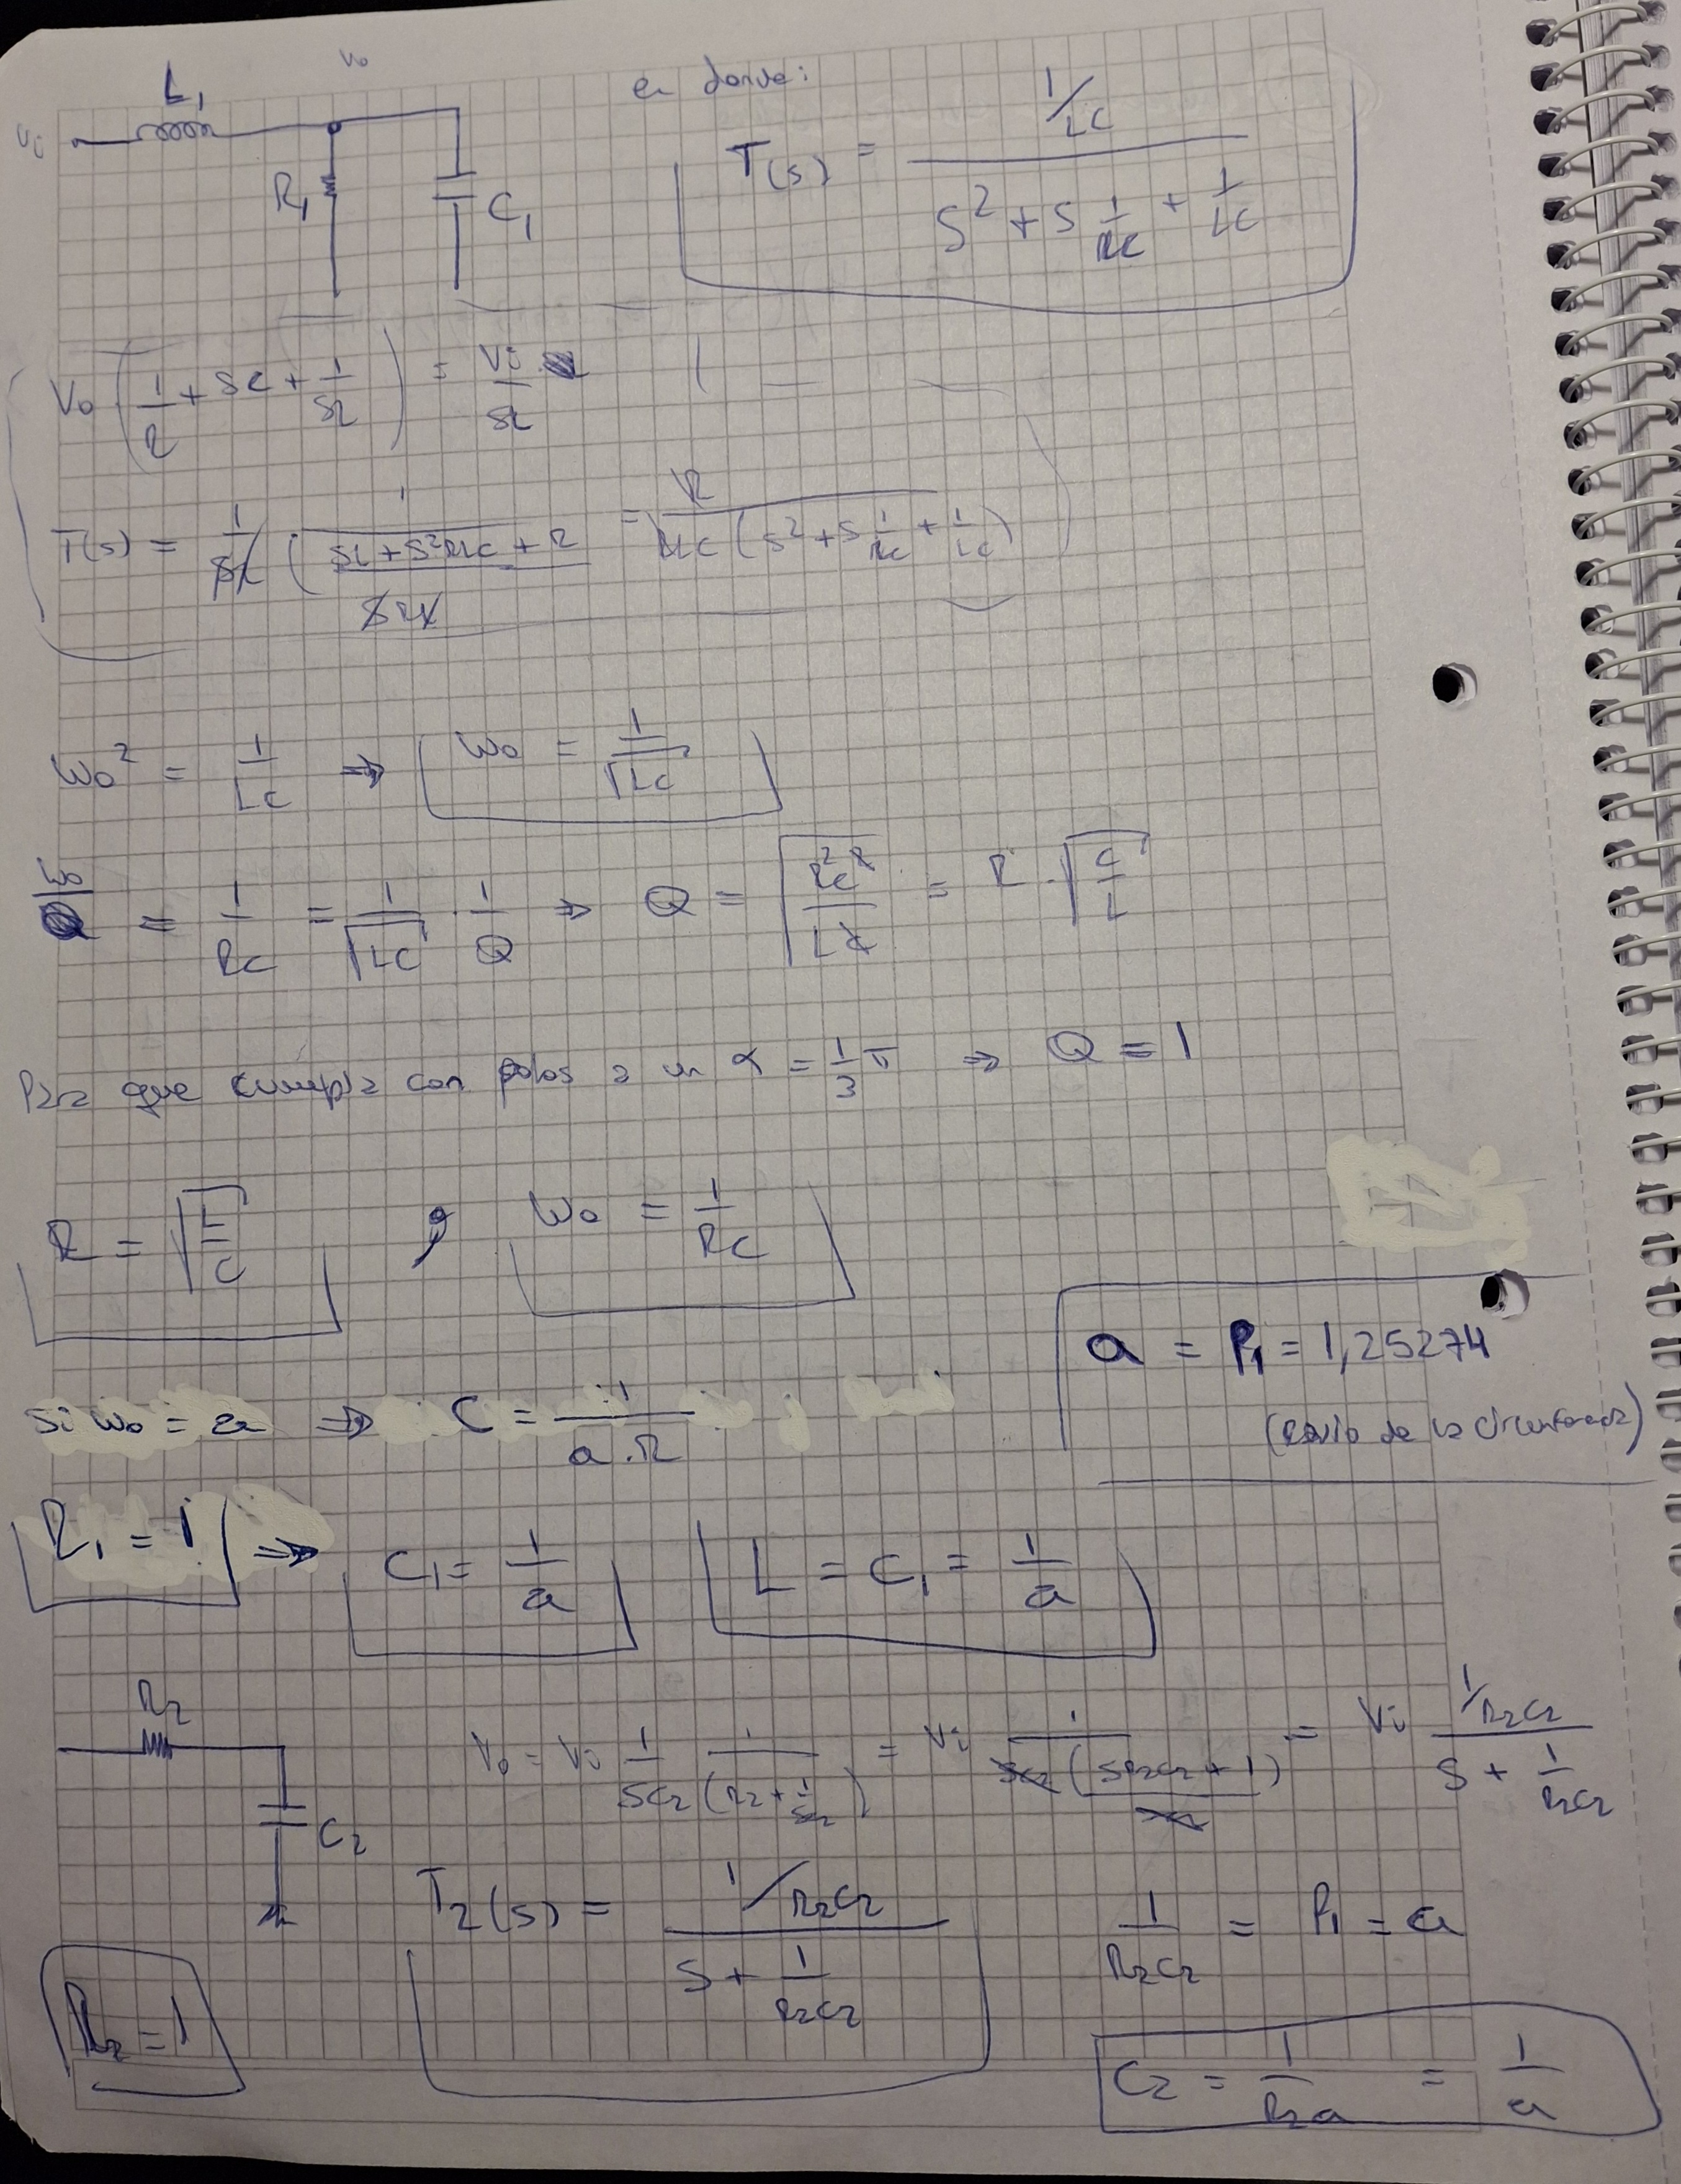 L₁ V₀
Vi
R₁ C₁
en donde:
T(s) = (1/LC) / (S² + S 1/RC + 1/LC)
V₀ (1/R + SC + 1/SL) = Vi/SL
T(s) = 1/SL · 1/((SL + S²RLC + R)/SRL) = R / (RLC (S² + S 1/RC + 1/LC))
ω₀² = 1/LC ⇒ ω₀ = 1/√LC
ω₀/Q = 1/RC = 1/√LC · 1/Q ⇒ Q = √(R²C²/LC) = R · √(C/L)
Para que cumpla con polos a un α = 1/3 π ⇒ Q = 1
R = √(L/C) , ω₀ = 1/RC
a = P₁ = 1,25274
(radio de la circunferencia)
si ω₀ = a ⇒ C = 1/(a.R)
R₁ = 1 ⇒ C₁ = 1/a L = C₁ = 1/a
R₂
C₂
V₀ = Vi 1/SC₂ · 1/(R₂ + 1/SC₂) = Vi 1/(SC₂ (SR₂C₂ + 1)/SC₂) = Vi (1/R₂C₂) / (S + 1/R₂C₂)
T₂(s) = (1/R₂C₂) / (S + 1/R₂C₂)
1/R₂C₂ = P₁ = a
R₂ = 1
C₂ = 1/R₂a = 1/a